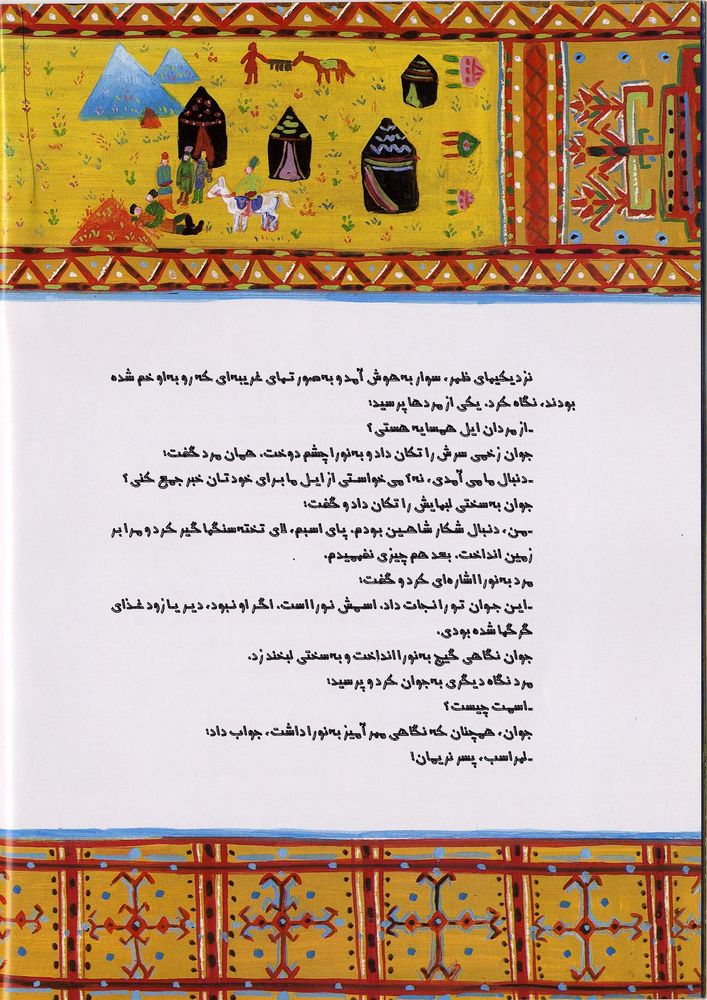 نزدیکیهای ظهر، سوار به‌هوش آمد و به صورتهای غریبه‌ای که رو به او خم شده
بودند، نگاه کرد. یکی از مردها پرسید:
ـ از مردان ایل همسایه هستی؟
جوان زخمی سرش را تکان داد و به نورا چشم دوخت. همان مرد گفت:
ـ دنبال ما می آمدی، نه؟ می خواستی از ایل ما برای خودتان خبر جمع کنی؟
جوان به سختی لبهایش را تکان داد و گفت:
ـ من، دنبال شکار شاهین بودم. پای اسبم، لای تخته سنگها گیر کرد و مرا بر
زمین انداخت. بعد هم چیزی نفهمیدم.
مرد به نورا اشاره‌ای کرد و گفت:
ـ این جوان تو را نجات داد. اسمش نورا است. اگر او نبود، دیر یا زود غذای
گرگها شده بودی.
جوان نگاهی گیج به نورا انداخت و به سختی لبخند زد.
مرد نگاه دیگری به جوان کرد و پرسید:
ـ اسمت چیست؟
جوان، همچنان که نگاهی مهرآمیز به نورا داشت، جواب داد:
ـ لهراسب، پسر نریمان!